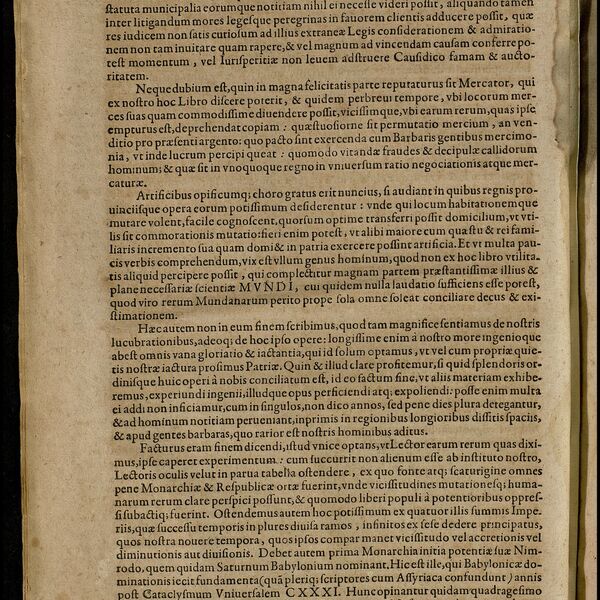 statuta municipalia eorumque notitiam nihil ei necesse videri possit, aliquando tamen
inter litigandum mores legesque peregrinas in fauorem clientis adducere possit, quæ
res iudicem non satis curiosum ad illius extraneæ Legis considerationem & admiratio-
nem non tam inuitare quam rapere, & vel magnum ad vincendam causam conferre po-
test momentum, vel Iurisperitiæ non leuem adstruere Causidico famam & aucto-
ritatem.
Neque dubium est, quin in magna felicitatis parte reputaturus sit Mercator, qui
ex nostro hoc Libro discere poterit, & quidem perbreui tempore, vbi locorum mer-
ces suas quam commodissime diuendere possit, vicissimque, vbi earum rerum, quas ipse
empturus est, deprehendat copiam: quæstuosiorne sit permutatio mercium, an ven-
ditio pro præsenti argento: quo pacto sint exercenda cum Barbaris gentibus mercimo-
nia, vt inde lucrum percipi queat: quomodo vitandæ fraudes & decipulæ callidorum
hominum; & quæ sit in vnoquoque regno in vniuersum ratio negociationis atque mer-
caturæ.
Artificibus opificumq; choro gratus erit nuncius, si audiant in quibus regnis pro-
uinciisque opera eorum potissimum desiderentur: vnde qui locum habitationemque
mutare volent, facile cognoscent, quorsum optime transferri possit domicilium, vt vti-
lis sit commorationis mutatio: fieri enim potest, vt alibi maiore cum quæstu & rei fami-
liaris incremento sua quam domi & in patria exercere possint artificia. Et vt multa pau-
cis verbis comprehendum, vix est vllum genus hominum, quod non ex hoc libro vtilita-
tis aliquid percipere possit, qui complectitur magnam partem præstantissimæ illius &
plane necessariæ scientiæ MVNDI, cui quidem nulla laudatio sufficiens esse potest,
quod viro rerum Mundanarum perito prope sola omne soleat conciliare decus & exi-
stimationem.
Hæc autem non in eum finem scribimus, quod tam magnifice sentiamus de nostris
lucubrationibus, adeoq; de hoc ipso opere: longissime enim à nostro more ingenioque
abest omnis vana gloriatio & iactantia, qui id solum optamus, vt vel cum propriæ quie-
tis nostræ iactura prosimus Patriæ. Quin & illud clare profitemur, si quid splendoris or-
dinisque huic operi à nobis conciliatum est, id eo factum fine, vt aliis materiam exhibe-
remus, experiundi ingenii, illudque opus perficiendi atq; expoliendi: posse enim multa
ei addi non inficiamur, cum in singulos, non dico annos, sed pene dies plura detegantur,
& ad hominum notitiam perueniant, inprimis in regionibus longioribus dissitis spaciis,
& apud gentes barbaras, quo rarior est nostris hominibus aditus.
Facturus eram finem dicendi, istud vnice optans, vt Lector earum rerum quas dixi-
mus, ipse caperet experimentum: cum succurrit non alienum esse ab instituto nostro,
Lectoris oculis velut in parua tabella ostendere, ex quo fonte atq; scaturigine omnes
pene Monarchiæ & Respublicæ ortæ fuerint, vnde vicissitudines mutationesq; huma-
narum rerum clare perspici possunt, & quomodo liberi populi à potentioribus oppres-
si subactiq; fuerint. Ostendemus autem hoc potissimum ex quatuor illis summis Impe-
riis, quæ successu temporis in plures diuisa ramos, infinitos ex sese dedere principatus,
quos nostra nouere tempora, quos ipsos compar manet vicissitudo vel accretionis vel
diminutionis aut diuisionis. Debet autem prima Monarchia initia potentiæ suæ Nim-
rodo, quem quidam Saturnum Babylonium nominant. Hic est ille, qui Babylonicæ do-
minationis iecit fundamenta (quā pleriq; scriptores cum Assyriaca confundunt) annis
post Cataclysmum Vniuersalem CXXXI. Hunc opinantur quidam quadragesimo